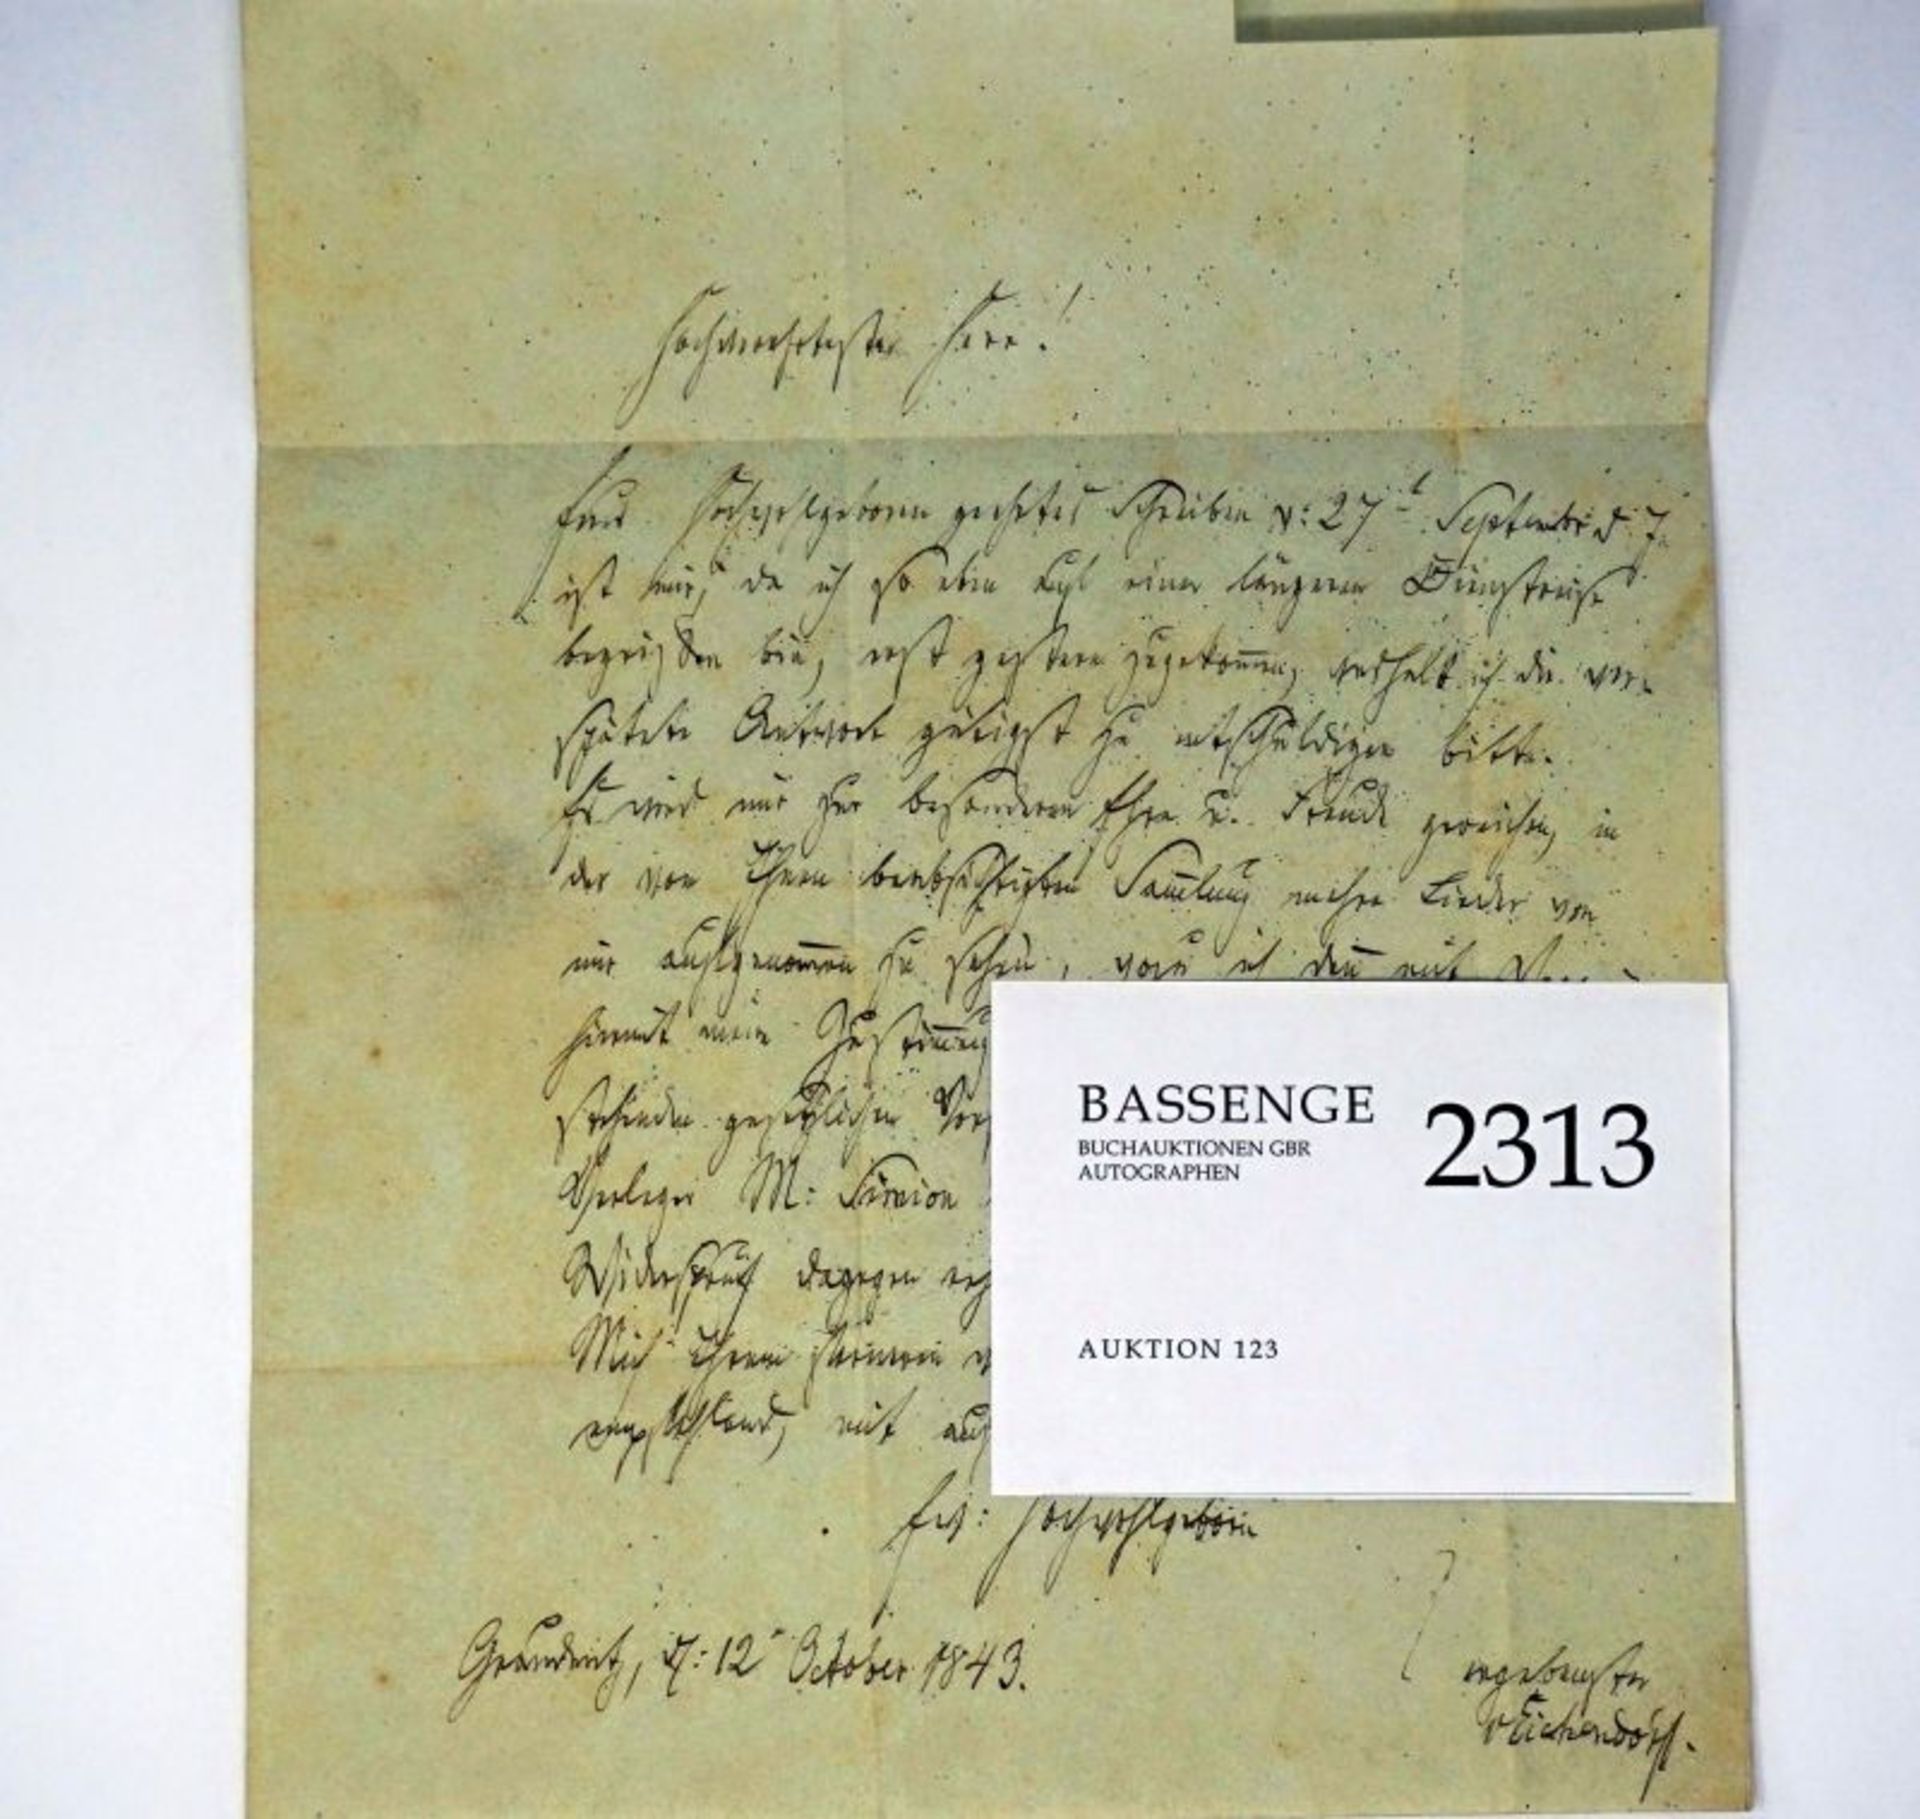 Hochverehrtester Herr!
Euer Hochwohlgeboren geehrtes Schreiben v: 27t September d. J.
ist mir, da ich so eben auf einer längeren Dienstreise
begriffen bin, erst gestern zugekommen, weshalb ich die ver-
spätete Antwort gütigst zu entschuldigen bitte.
Es wird mir zur besonderen Ehre u. Freude gereichen, in
der von Ihnen beabsichtigten Sammlung mehre Lieder von
mir aufgenommen zu sehen, wozu ich denn mit
hiermit meine Zustimmung
stehenden gesetzlichen
Verleger M: Simion
Widerspruch dagegen
Mich Ihrem ferneren
empfehlend, mit
Ew: Hochwohlgeboren
Graudenz, d: 12t October 1843.
ergebenster
vEichendorff.
BASSENGE
BUCHAUKTIONEN GBR
AUTOGRAPHEN
2313
AUKTION 123